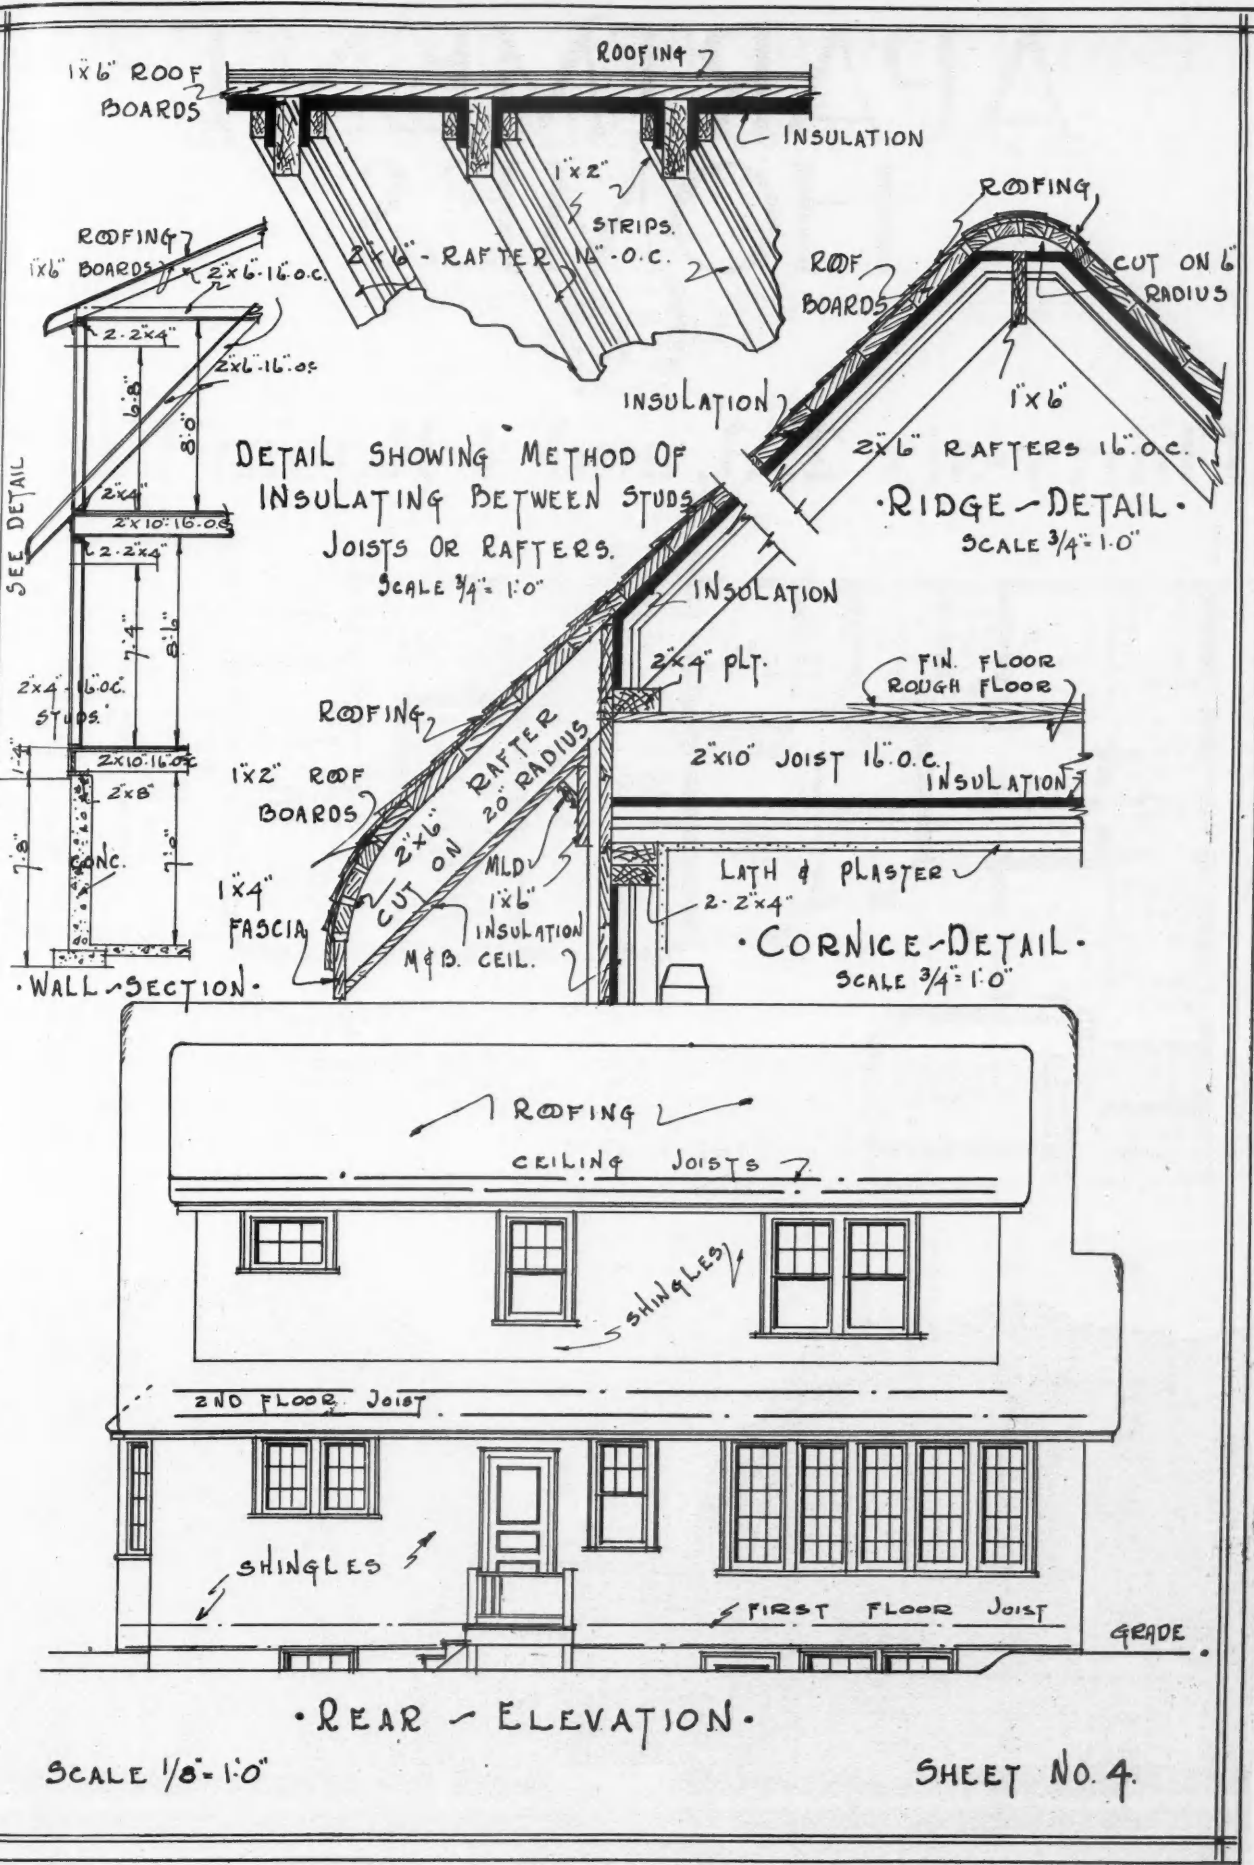 ROOFING
1"x6" ROOF
BOARDS
INSULATION
1"x2"
STRIPS.
2"x6" - RAFTER 16"-O.C.
ROOFING
1"x6" BOARDS
2"x6"-16"-O.C.
2-2"x4"
2"x6"-16"-O.C.
6'-8"
8'-0"
2"x4"
2"x10"-16"-O.C.
2-2"x4"
SEE DETAIL
7'-4"
8'-6"
2"x4"-16"O.C.
STUDS.
1'-4"
2"x10"-16"O.C.
2"x8"
7'-8"
CONC.
7'-0"
•WALL-SECTION•
DETAIL SHOWING METHOD OF
INSULATING BETWEEN STUDS
JOISTS OR RAFTERS.
SCALE 3/4"=1'-0"
ROOFING
ROOF
BOARDS
CUT ON 6"
RADIUS
INSULATION
1"x6"
2"x6" RAFTERS 16".O.C.
•RIDGE-DETAIL•
SCALE 3/4"=1'-0"
INSULATION
2"x4" PLT.
FIN. FLOOR
ROUGH FLOOR
ROOFING
RAFTER
20" RADIUS
2"x6"
CUT ON
1"x2" ROOF
BOARDS
2"x10" JOIST 16".O.C.
INSULATION
MLD
1"x6"
INSULATION
M&B. CEIL.
1"x4"
FASCIA
LATH & PLASTER
2-2"x4"
•CORNICE-DETAIL•
SCALE 3/4"=1'-0"
ROOFING
CEILING JOISTS
SHINGLES
2ND FLOOR JOIST
SHINGLES
FIRST FLOOR JOIST
GRADE
•REAR - ELEVATION•
SCALE 1/8"=1'-0"
SHEET NO. 4.